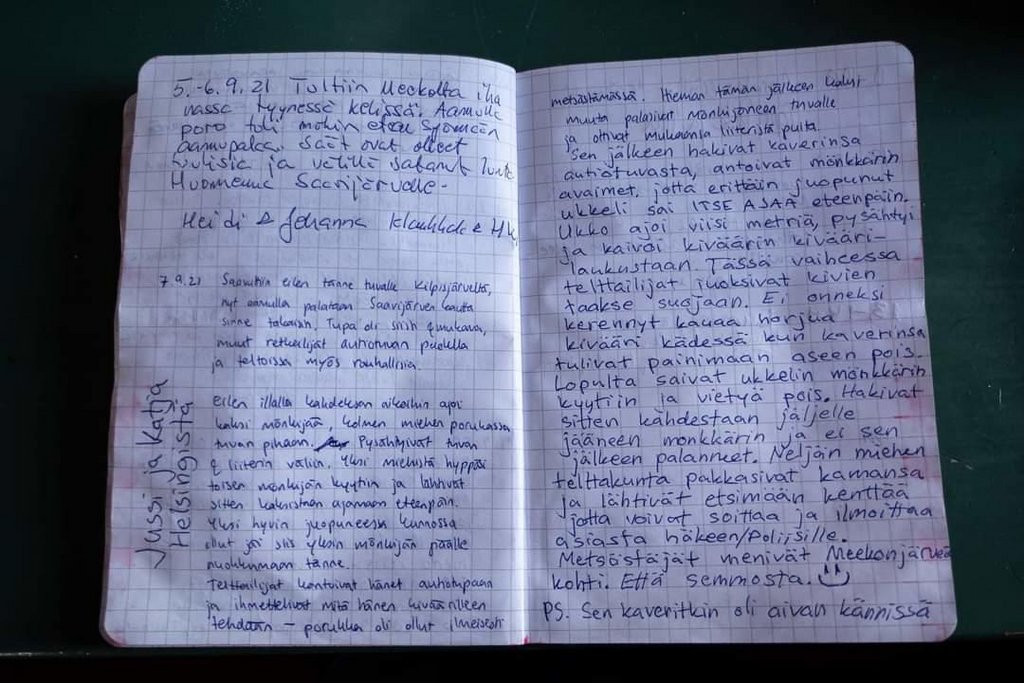 5.-6.9.21 Tultiin Meekolta iha
nassa tyynessä kelissä. Aamulla
poro tuli mökin eteen syömään
aamupalaa. Säät ovat olleet
tuulisia ja välillä satanut
Huomenna Saarijärvelle.
Heidi & Johanna
7.9.21 Saavuttiin eilen tänne tuvalle Kilpisjärveltä,
nyt aamulla palataan Saarijärven kautta
sinne takaisin. Tupa oli siisti & mukava,
muut retkeilijät autiotuvan puolella
ja teltoissa myös rauhallisia.
Eilen illalla kahdeksan aikoihin ajoi
kaksi mönkijää, kolmen miehen porukassa
tuvan pihaan. Pysähtyivät tuvan
& liiterin väliin. Yksi miehistä hyppäsi
toisen mönkijän kyytiin ja lähtivät
sitten kaksistaan ajamaan eteenpäin.
Yksi hyvin juopuneessa kunnossa
ollut jäi siis yksin mönkijän päälle
nuokkumaan tänne.
Telttailijat kantoivat hänet autiotupaan
ja ihmettelivät mitä hänen kiväärilleen
tehdään – porukka oli ollut ilmeisesti
Jussi ja Katja
Helsingistä
metsästämässä. Hieman tämän jälkeen kaksi
muuta palasivat mönkijöineen tuvalle
ja ottivat mukaansa liiteristä puita.
Sen jälkeen hakivat kaverinsa
autiotuvasta, antoivat mönkkärin
avaimet, jotta erittäin juopunut
ukkeli sai ITSE AJAA eteenpäin.
Ukko ajoi viisi metriä, pysähtyi
ja kaivoi kiväärin kivääri-
laukustaan. Tässä vaiheessa
telttailijat juoksivat kivien
taakse suojaan. Ei onneksi
kerennyt kauaa horjua
kivääri kädessä kun kaverinsa
tulivat painimaan aseen pois.
Lopulta saivat ukkelin mönkkärin
kyytiin ja vietyä pois. Hakivat
sitten kahdestaan jäljelle
jääneen mönkkärin ja ei sen
jälkeen palanneet. Neljän miehen
telttakunta pakkasivat kamansa
ja lähtivät etsimään kenttää
jotta voivat soittaa ja ilmoittaa
asiasta häkeen/poliisille.
Metsästäjät menivät Meekonjärveä
kohti. Että semmosta.
PS. Sen kaveritkin oli aivan kännissä